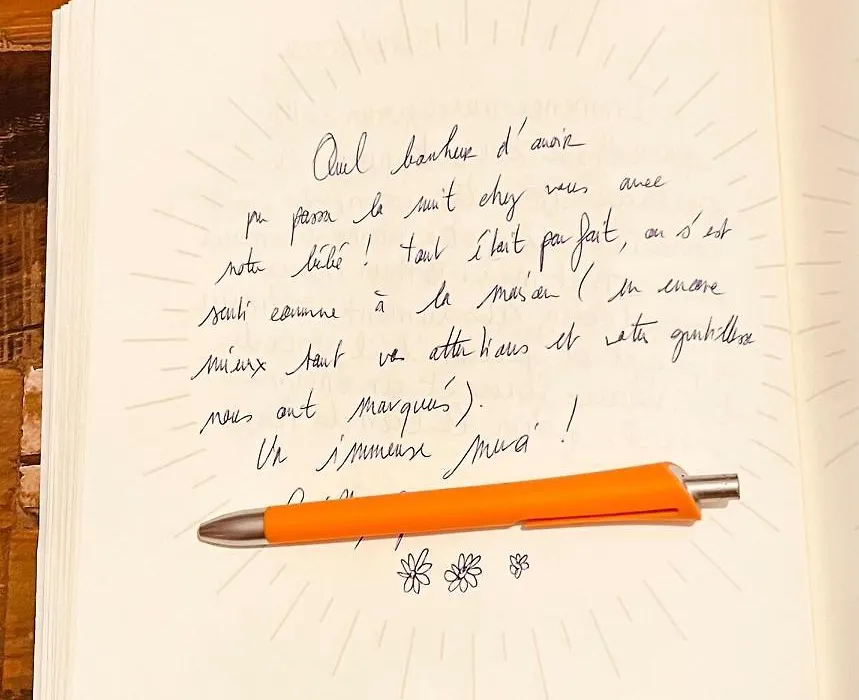 Quel bonheur d'avoir
pu passer la nuit chez vous avec
notre bébé ! tout était parfait, on s'est
senti comme à la maison (en encore
mieux tant vos attentions et votre gentillesse
nous ont marqués).
Un immense merci !